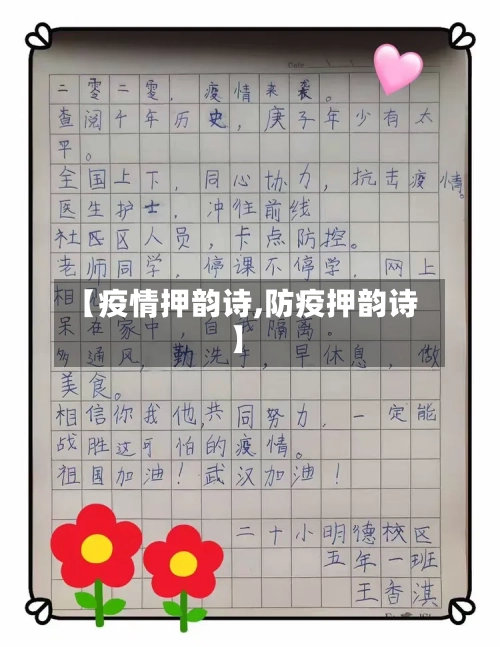 Date
二零二零，疫情来袭。
查阅千年历史，庚子年少有太
平。
全国上下，同心协力，抗击疫情。
医生护士，冲往前线
社区区人员，卡点防控。
老师同学，停课不停学，网上
相
【疫情押韵诗,防疫押韵诗
】
呆在家中，自我隔离。
多通风，勤洗手，早休息，做
美食。
相信你我他,共同努力，一定能
战胜这可怕的疫情。
祖国加油！武汉加油！
二十小明德校区
五年一班
王香淇